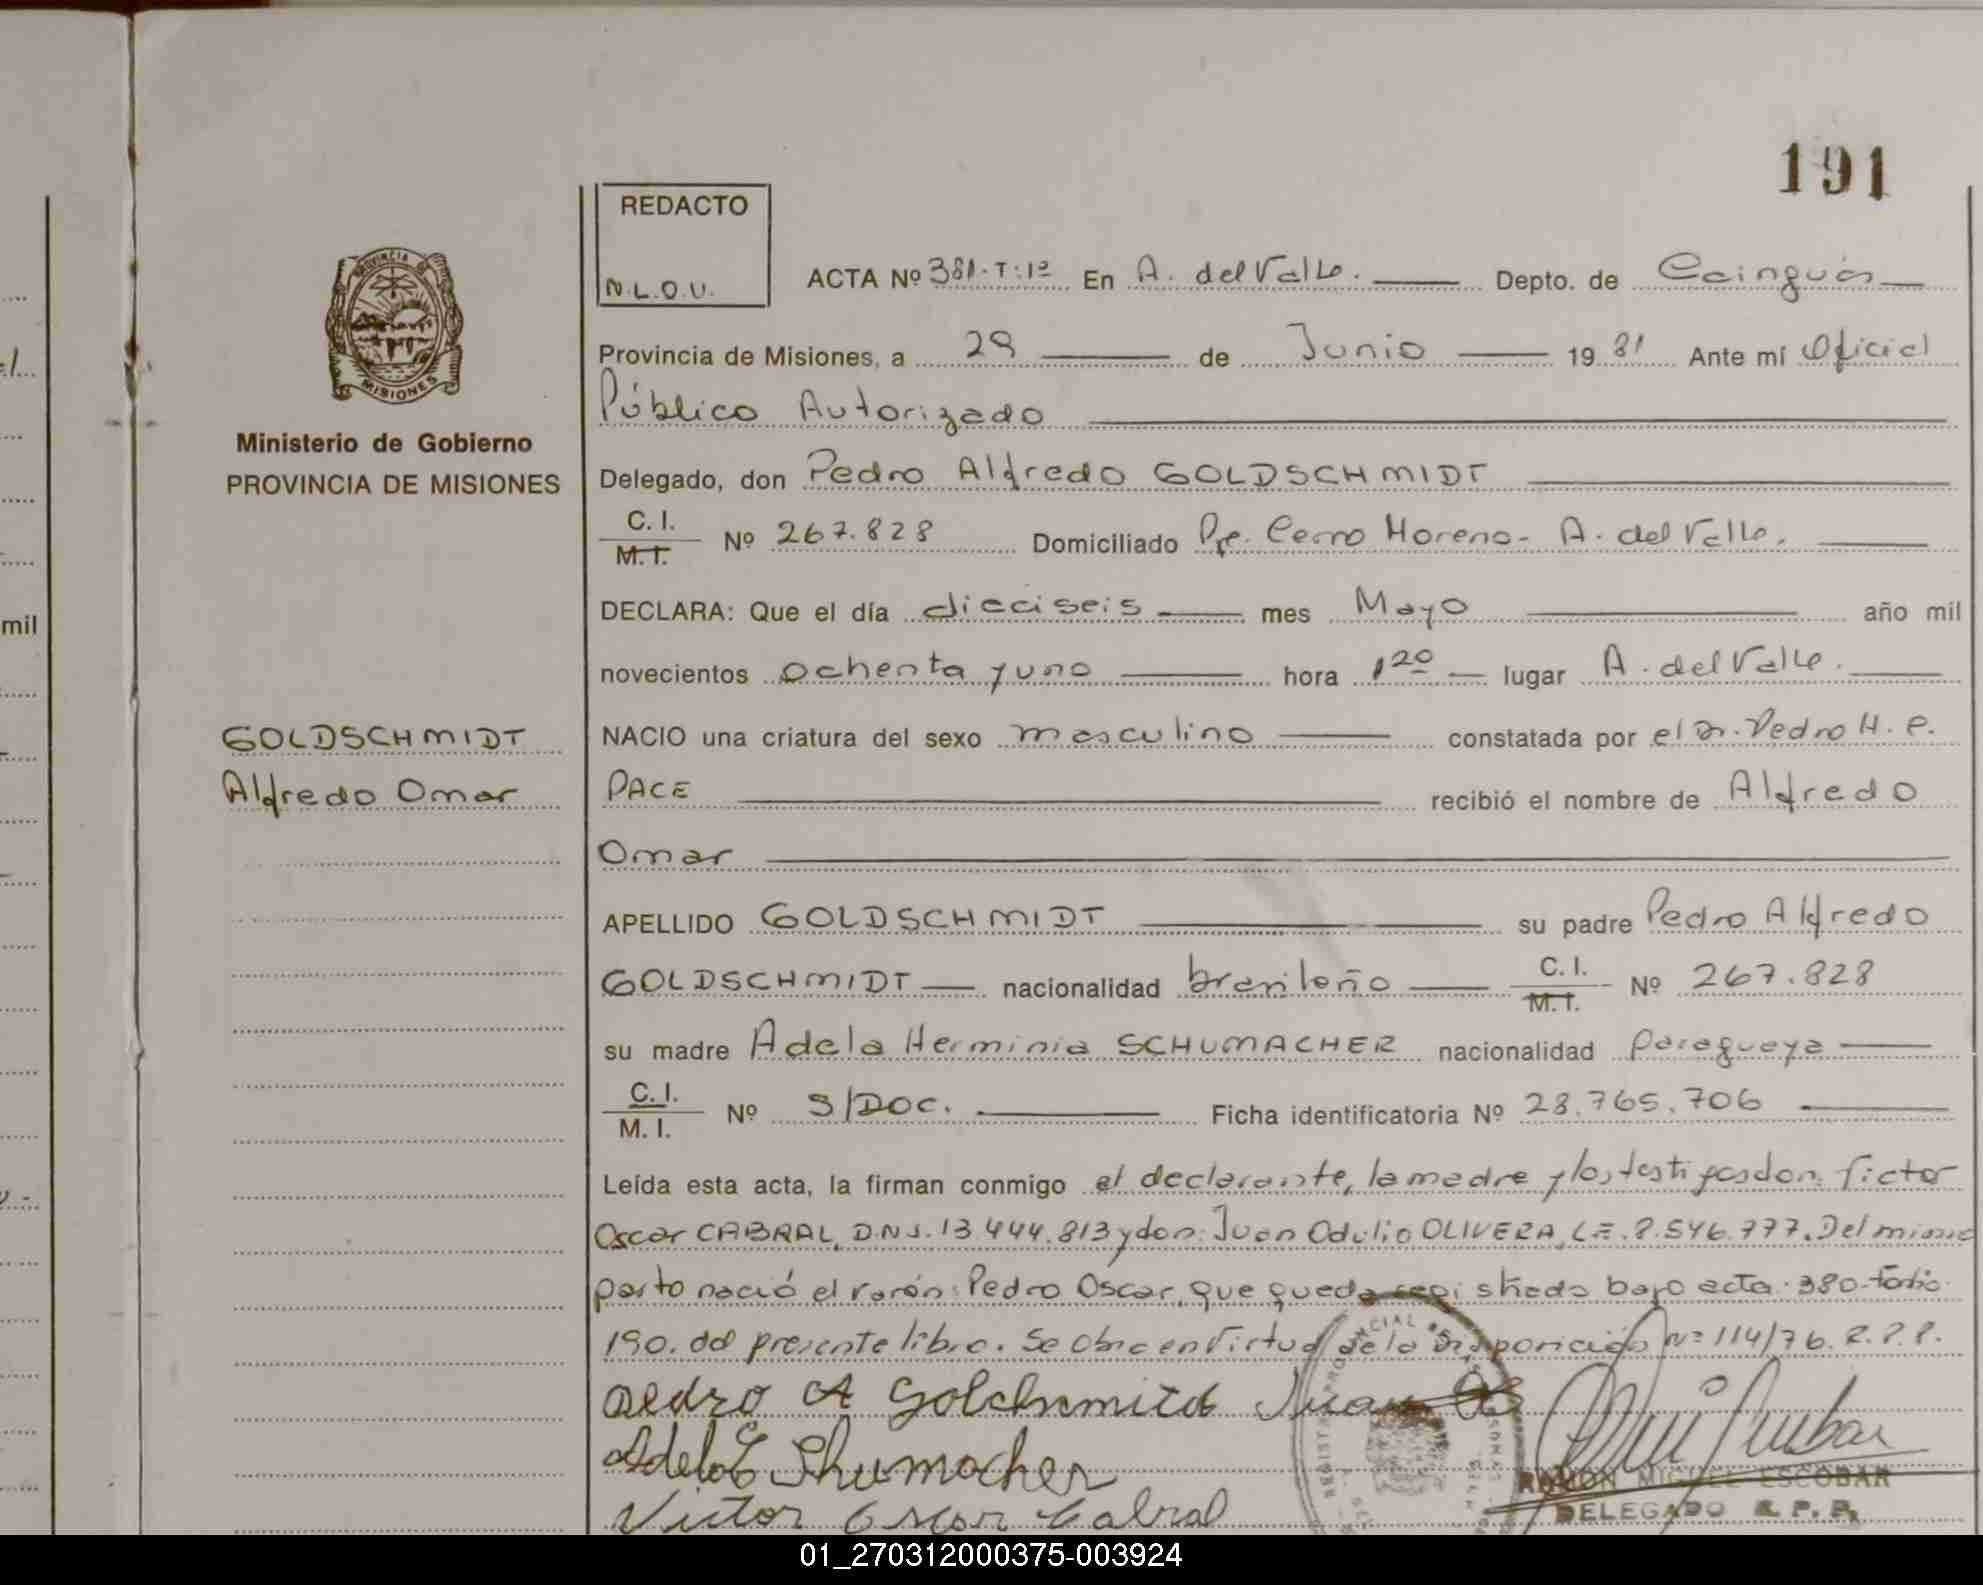 191
REDACTO
N.L.O.U.
ACTA Nº 381-T:1º En A. del Valle. Depto. de Cainguás
Provincia de Misiones, a 29 de Junio 19 81 Ante mí Oficial
Público Autorizado
PROVINCIA DE
MISIONES
Ministerio de Gobierno
PROVINCIA DE MISIONES
Delegado, don Pedro Alfredo GOLDSCHMIDT
C. I.
M. I.
Nº 267.828 Domiciliado Pje. Cerro Moreno - A. del Valle.
DECLARA: Que el día dieciseis mes Mayo año mil
novecientos ochenta y uno hora 1 20 lugar A. del Valle.
GOLDSCHMIDT
Alfredo Omar
NACIO una criatura del sexo masculino constatada por el Dr. Pedro H. P.
PACE recibió el nombre de Alfredo
Omar
APELLIDO GOLDSCHMIDT su padre Pedro Alfredo
GOLDSCHMIDT nacionalidad brasileño C. I. M. I. Nº 267.828
su madre Adela Herminia SCHUMACHER nacionalidad Paraguaya
C. I.
M. I.
Nº S/DOC. Ficha identificatoria Nº 28.765.706
Leída esta acta, la firman conmigo el declarante, la madre y los testigos don: Victor
Oscar CABRAL, D.N.I. 13.444.813 y don: Juan Odulio OLIVERA, L.E. 8.546.777. Del mismo
parto nació el varón: Pedro Oscar, que queda registrado bajo acta: 380-folio
190. del presente libro. Se obra en Virtud de la Disposición Nº 114/76. R.P.P.
Pedro A Golchmitd Juan
Adela Shumacher
Victor Oscar Cabral
RAMON MIGUEL ESCOBAR
DELEGADO R. P. P.
mil
01_270312000375-003924